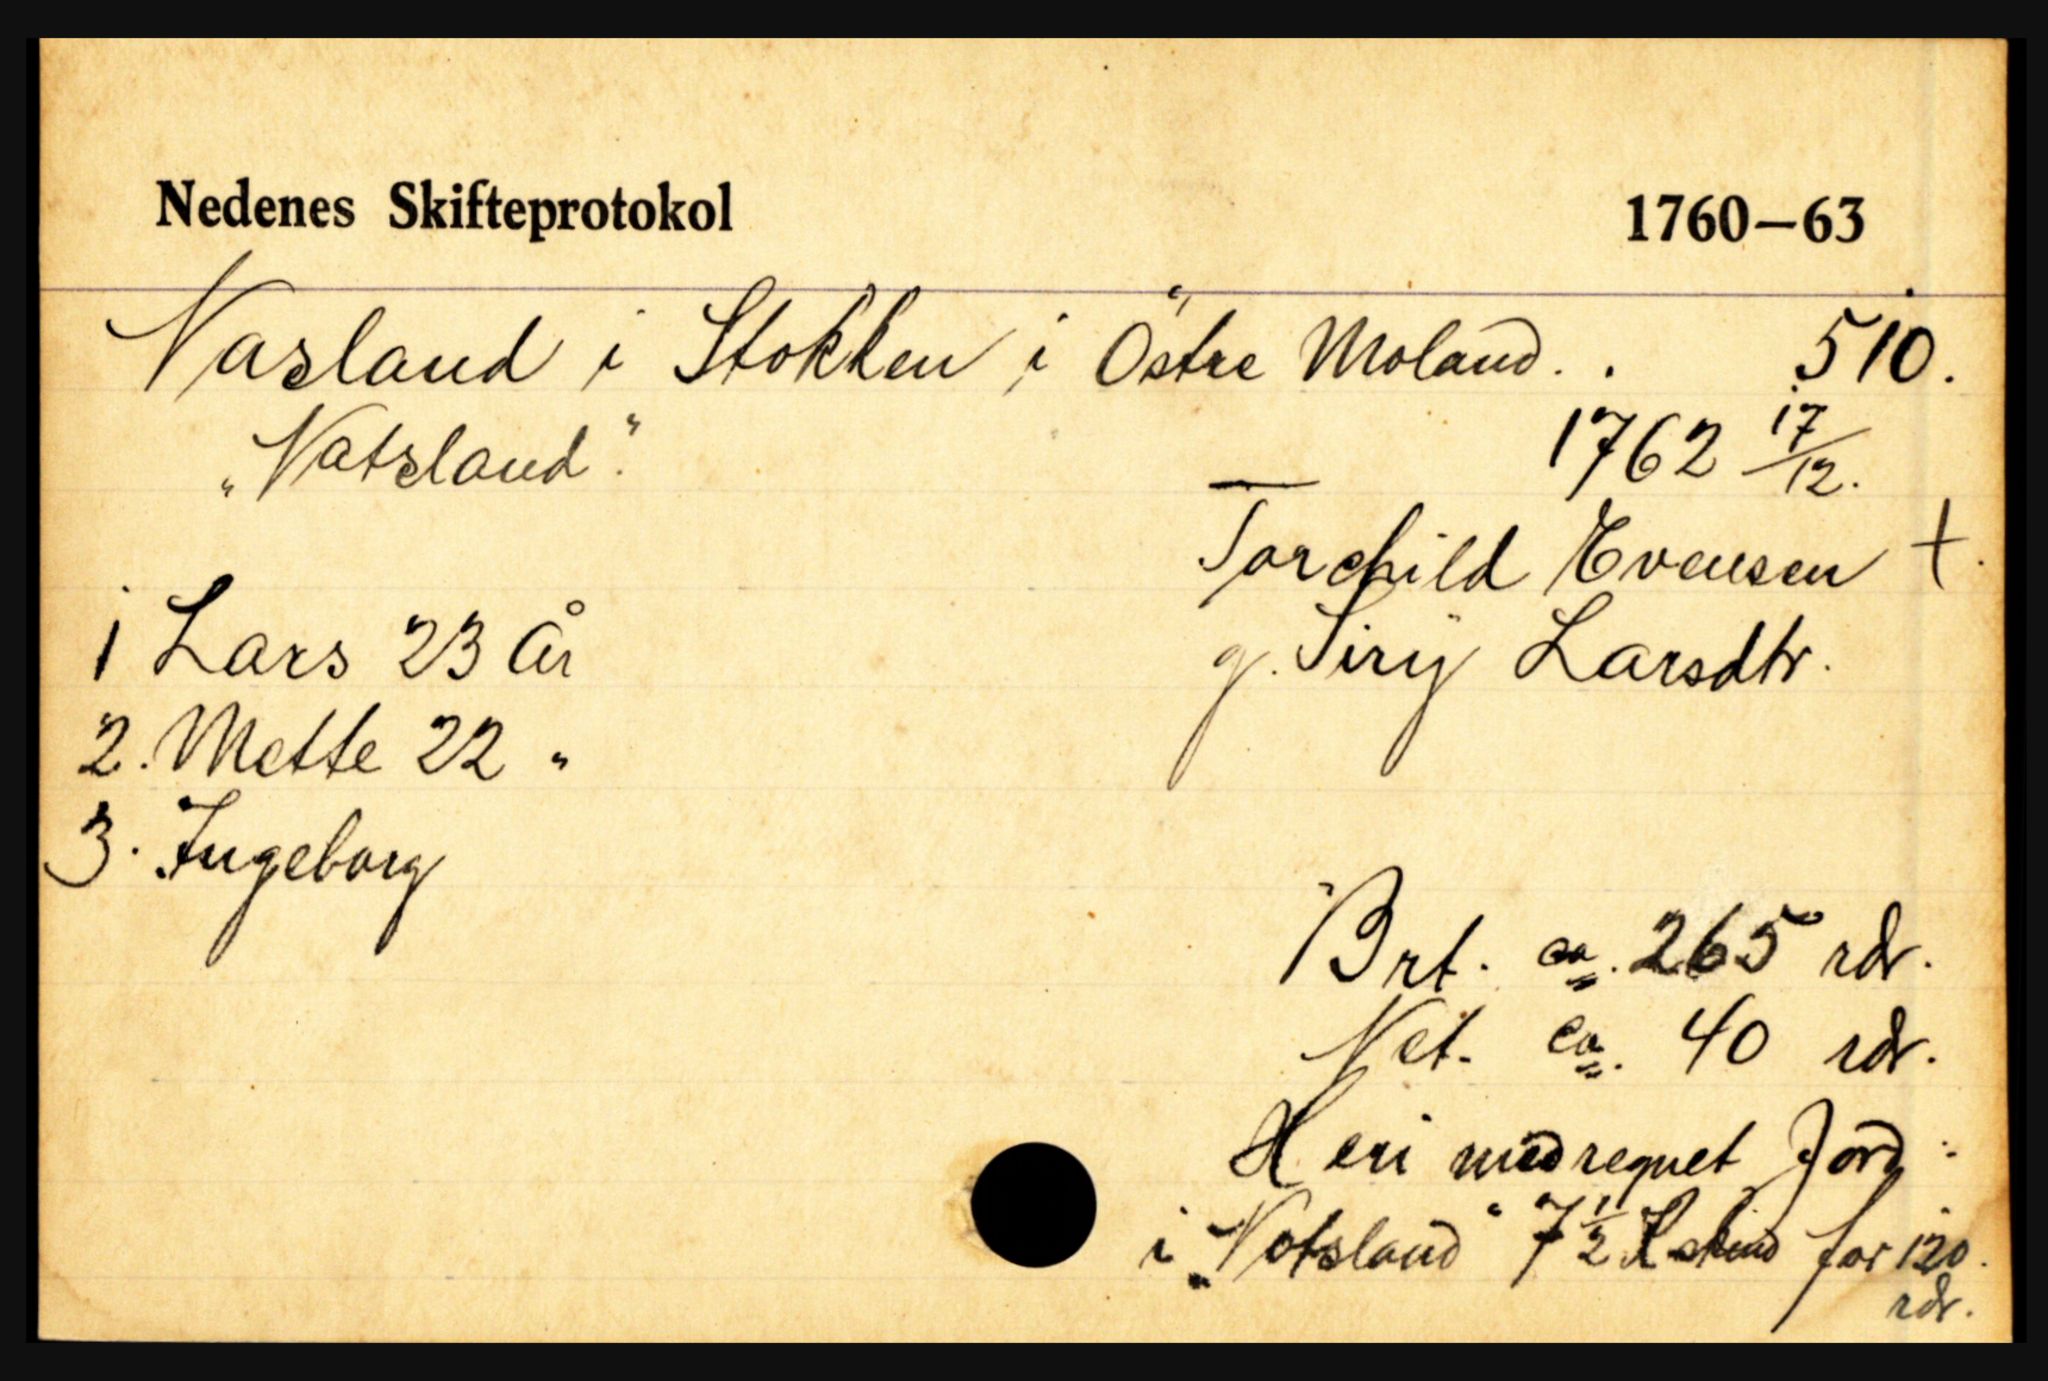 Nedenes Skifteprotokol 1760—63
Nasland i Stokken i Östre Moland. . 510.
„Natsland". 1762 17/12.
Torchild Evensen †.
1 Lars 23 år g. Sirij Larsdtr.
2. Mette 22 "
3. Ingeborg
Brt. ca. 265 rdr.
Net. ca. 40 rdr.
Heri medregnet Jord:
i „Notsland" 7 1/2 for 120.
rdr.